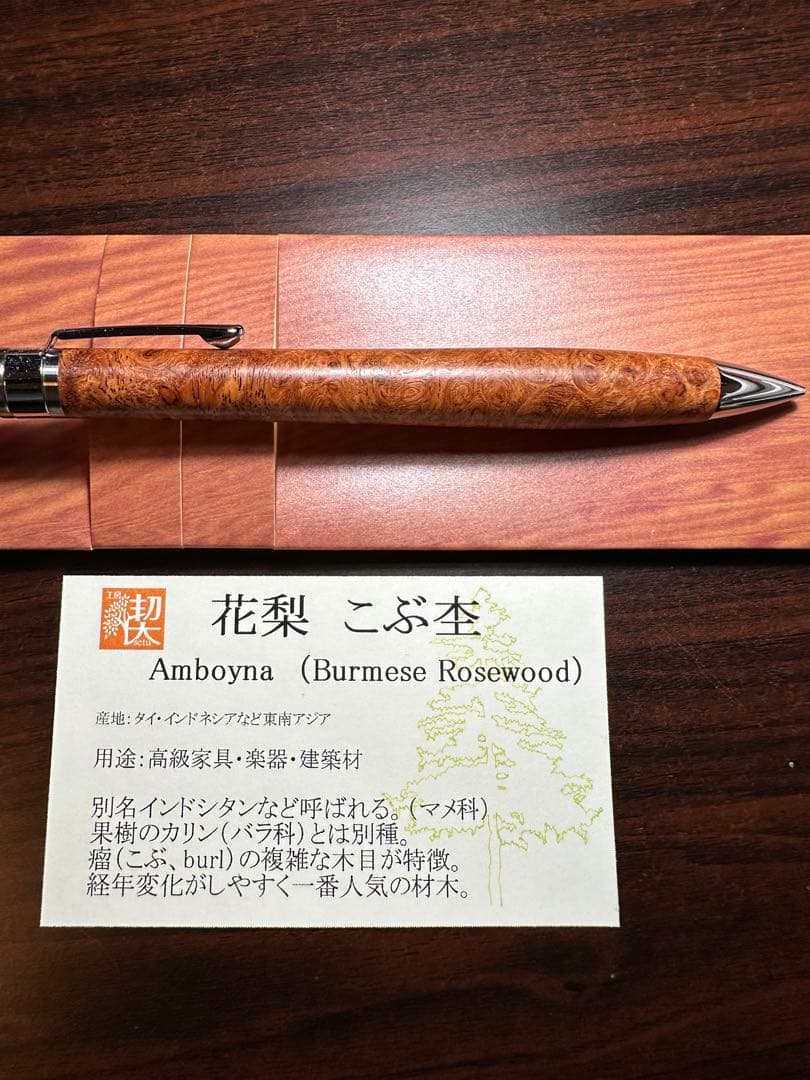 工房
楔
setu
花梨 こぶ杢
Amboyna (Burmese Rosewood)
産地：タイ・インドネシアなど東南アジア
用途：高級家具・楽器・建築材
別名インドシタンなど呼ばれる。（マメ科）
果樹のカリン（バラ科）とは別種。
瘤（こぶ、burl）の複雑な木目が特徴。
経年変化がしやすく一番人気の材木。